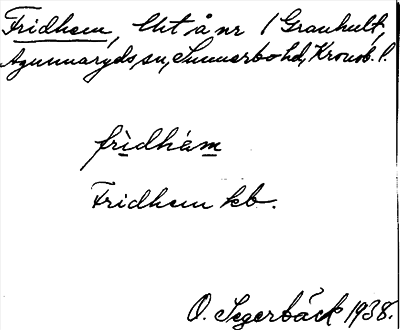 Fridhem, lht å nr 1 Granhult,
Agunnaryds sn, Sunnerbo hd, Kronob. l.
frìdhám
Fridhem kb.
O. Segerbäck 1938.